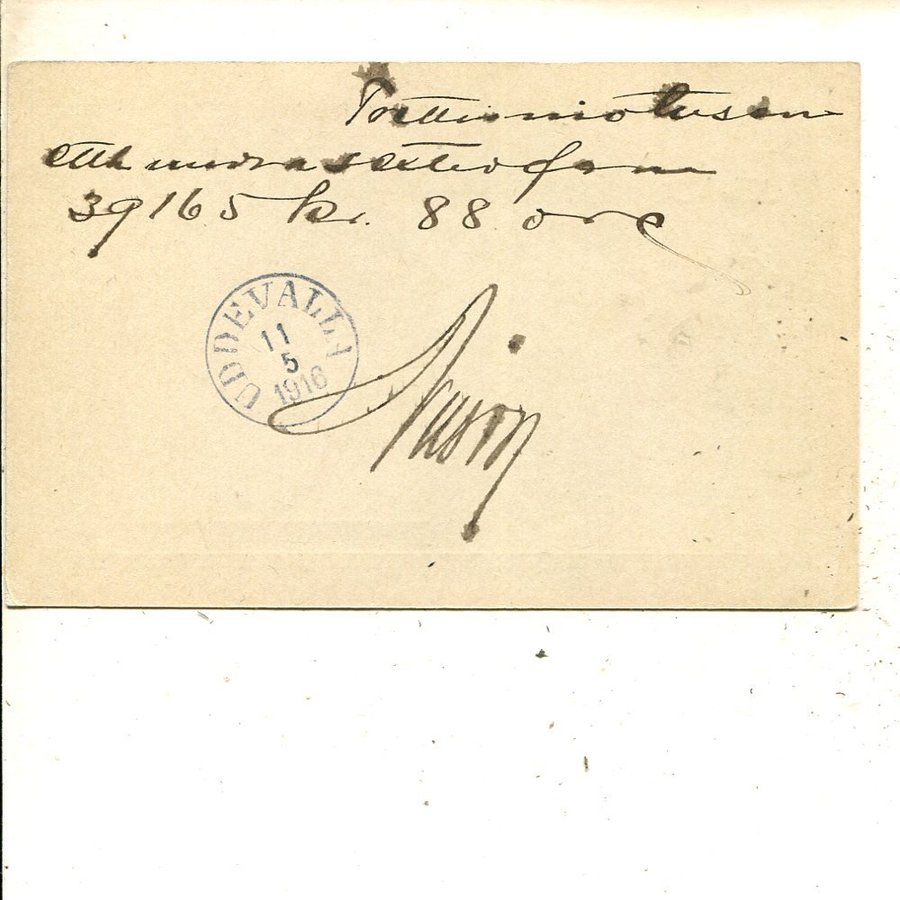 Trettioniotusen
ett hundrasextiofem
39165 kr. 88 öre
UDDEVALLA
11
5
1916